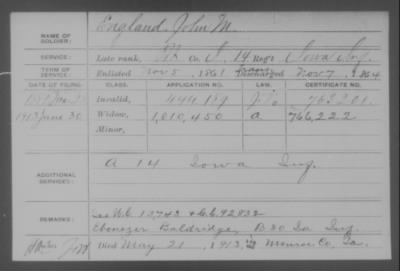 NAME OF SOLDIER:
England, John M.
SERVICE:
Late rank, Co. I, 14 Reg't Iowa Inf.
TERM OF SERVICE:
Enlisted Nov 5, 1861 Discharged Nov 7, 1864
DATE OF FILING. CLASS. APPLICATION NO. LAW. CERTIFICATE NO.
Invalid, 763201
1913 June 30 Widow, 1,010,450 a 766,222
Minor,
ADDITIONAL SERVICE:
A 14 Iowa Inf.
REMARKS:
See W.C. 13743 & C.C. 92832
Ebenezer Baldridge, B 30 Ia Inf.
Died May 21, 1913, Monroe Co, Ia.